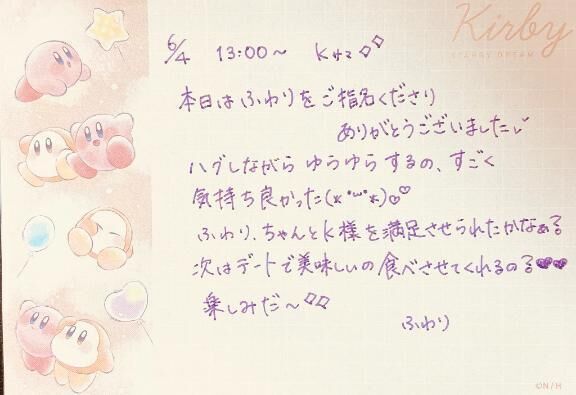 Kirby
STARRY DREAM
6/4 13:00～ Kサマ◇◇
本日はふわりをご指名くださり
ありがとうございました✓
ハグしながら ゆらゆら するの、すごく
気持ち良かった(*˙꒳˙*)♡♡
ふわり、ちゃんとK様を満足させられたかなぁる
次はデートで美味しいの食べさせてくれるのる♥♥
楽しみだ～◇◇
ふわり
©N/H